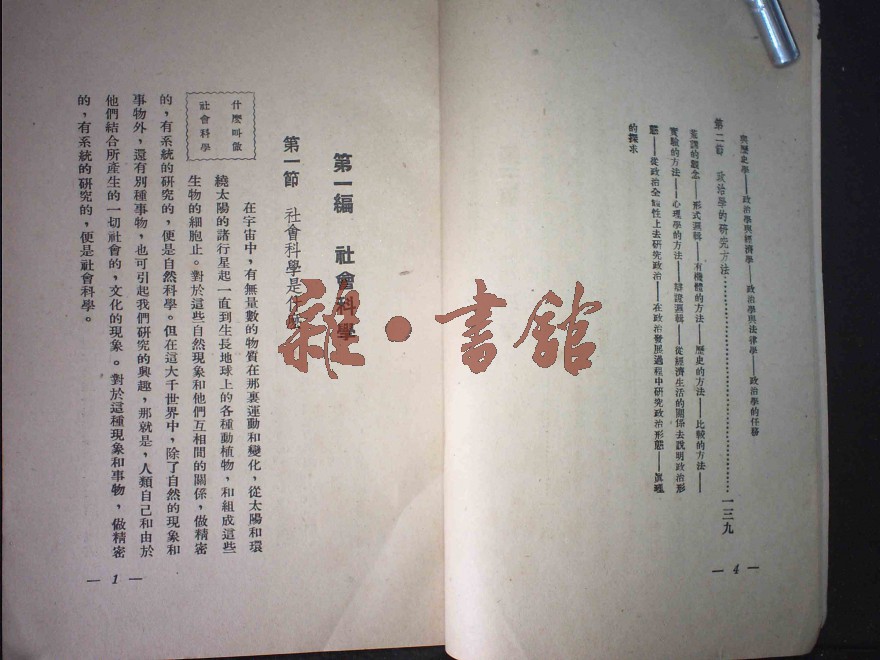 與歷史學——政治學與經濟學——政治學與法律學——政治學的任務
第二節　政治學的研究方法…………………………一三九
荒謬的觀念——形式邏輯——有機體的方法——歷史的方法——比較的方法——
實驗的方法——心理學的方法——辯證邏輯——從經濟生活的關係去說明政治形
態——從政治全體性上去研究政治——在政治發展過程中研究政治形態——真理
的探求
— 4 —
第一編　社會科學
第一節　社會科學是什麼
什麼叫做
社會科學
在宇宙中，有無量數的物質在那裏運動和變化，從太陽和環
繞太陽的諸行星起一直到生長地球上的各種動植物，和組成這些
生物的細胞止。對於這些自然現象和他們互相間的關係，做精密
的，有系統的研究的，便是自然科學。但在這大千世界中，除了自然的現象和
事物外，還有別種事物，也可引起我們研究的興趣，那就是，人類自己和由於
他們結合所產生的一切社會的，文化的現象。對於這種現象和事物，做精密
的，有系統的研究的，便是社會科學。
— 1 —
雜·書館